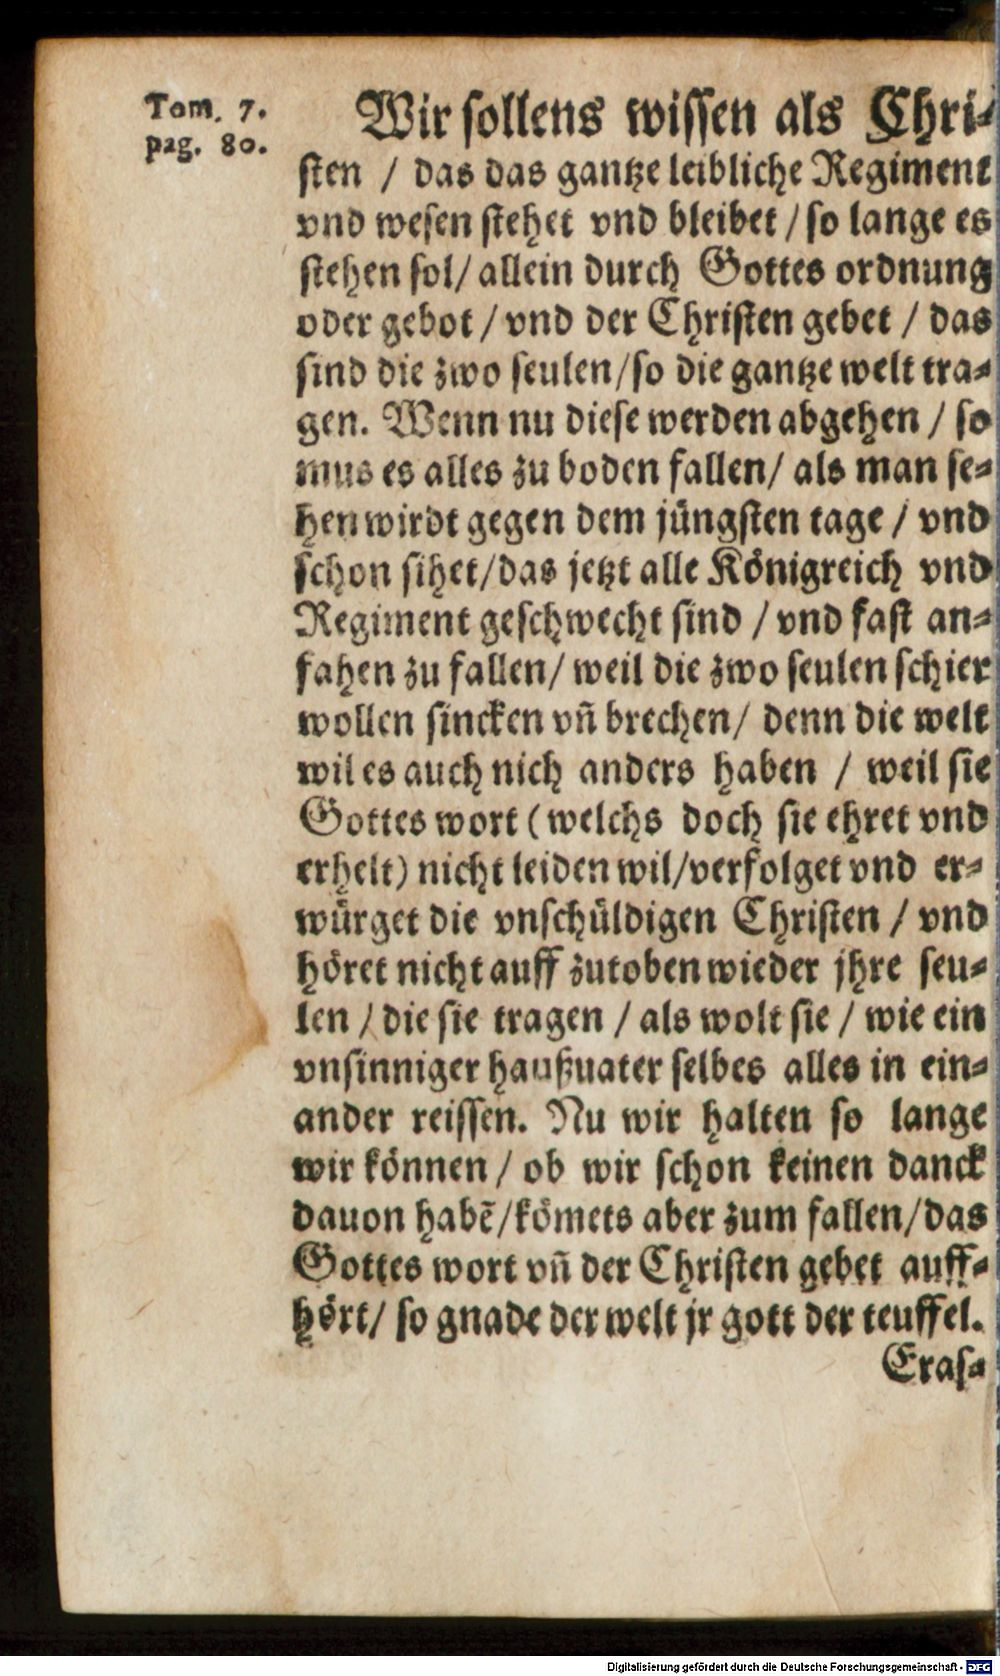 Tom. 7.
pag. 80.
Wir sollens wissen als Chri-
sten / das das gantze leibliche Regiment
vnd wesen stehet vnd bleibet / so lange es
stehen sol/ allein durch Gottes ordnung
oder gebot / vnd der Christen gebet / das
sind die zwo seulen/so die gantze welt tra-
gen. Wenn nu diese werden abgehen / so
mus es alles zu boden fallen/ als man se-
hen wirdt gegen dem jüngsten tage / vnd
schon sihet/das jetzt alle Königreich vnd
Regiment geschwecht sind / vnd fast an-
fahen zu fallen/ weil die zwo seulen schier
wollen sincken vñ brechen/ denn die welt
wil es auch nich anders haben / weil sie
Gottes wort (welchs doch sie ehret vnd
erhelt) nicht leiden wil/verfolget vnd er-
würget die vnschüldigen Christen / vnd
höret nicht auff zutoben wieder jhre seu-
len / die sie tragen / als wolt sie / wie ein
vnsinniger haußuater selbes alles in ein-
ander reissen. Nu wir halten so lange
wir können / ob wir schon keinen danck
dauon habẽ/kömets aber zum fallen/das
Gottes wort vñ der Christen gebet auff-
hört/ so gnade der welt jr gott der teuffel.
Eras-
Digitalisierung gefördert durch die Deutsche Forschungsgemeinschaft - DFG